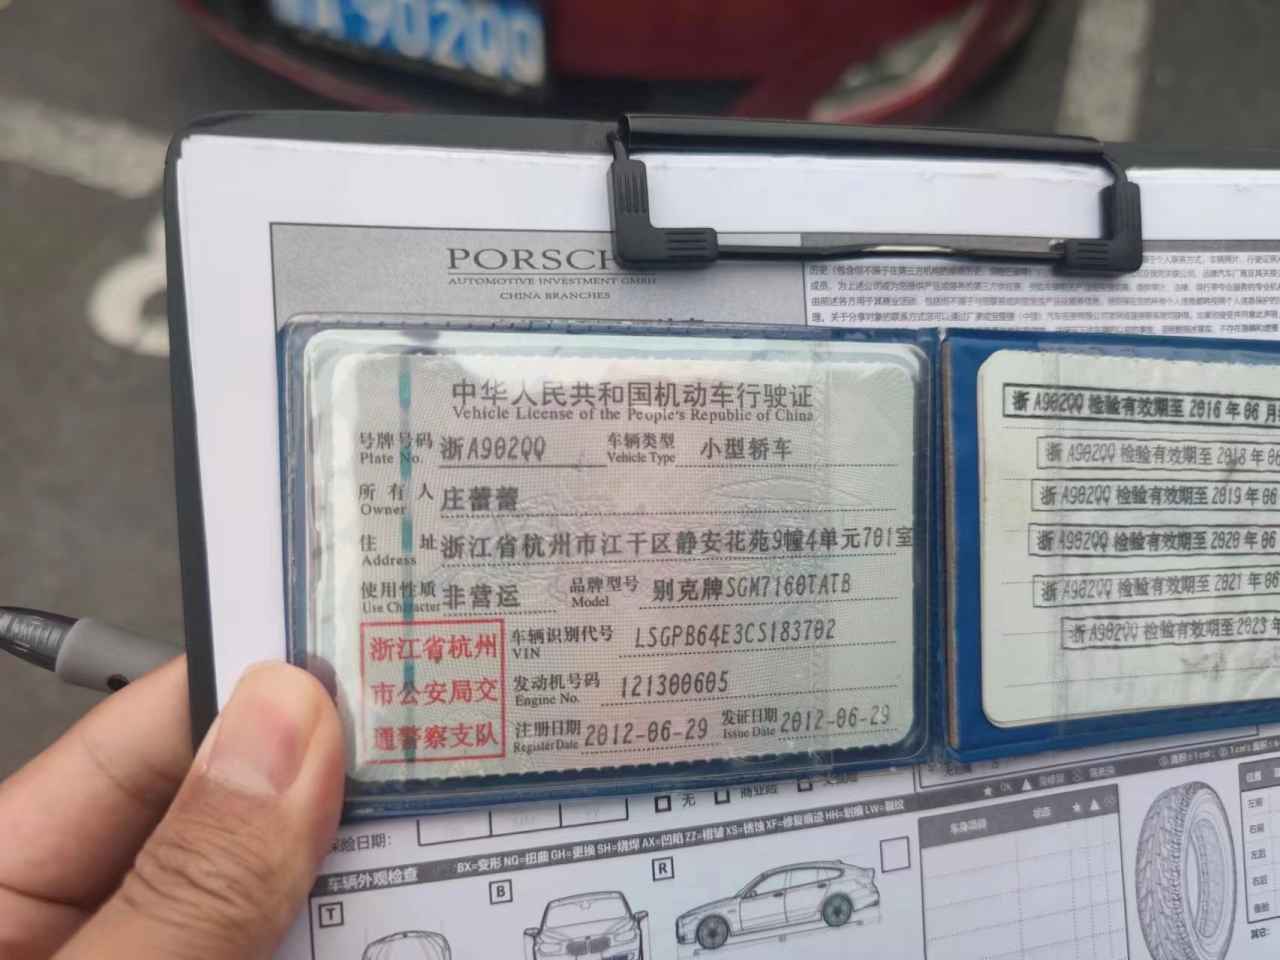 A902QQ
PORSCH
AUTOMOTIVE INVESTMENT GMBH
CHINA BRANCHES
中华人民共和国机动车行驶证
Vehicle License of the People's Republic of China
号牌号码 浙A902QQ 车辆类型 小型轿车
Plate No. Vehicle Type
所有人 庄蕾蕾
Owner
住址 浙江省杭州市江干区静安花苑9幢4单元701室
Address
使用性质 非营运 品牌型号 别克牌SGM7160TATB
Use Character Model
浙江省杭州
市公安局交
通警察支队
车辆识别代号 LSGPB64E3CS183702
VIN
发动机号码 121300605
Engine No.
注册日期 2012-06-29 发证日期 2012-06-29
Register Date Issue Date
浙A902QQ 检验有效期至 2016 年 06 月
浙A902QQ 检验有效期至 2018 年 06
浙A902QQ 检验有效期至 2019 年 06
浙A902QQ 检验有效期至 2020 年 06
浙A902QQ 检验有效期至 2021 年 06
浙A902QQ 检验有效期至 2023 年
无 商业险
保险日期:
车辆外观检查
BX=变形 NQ=扭曲 GH=更换 SH=烧焊 AX=凹陷 ZZ=褶皱 XS=锈蚀 XF=修复痕迹 HH=划痕 LW=裂纹
T
B
R
车身项目 状态
位置
左前
右前
左后
右后
备胎
其它: